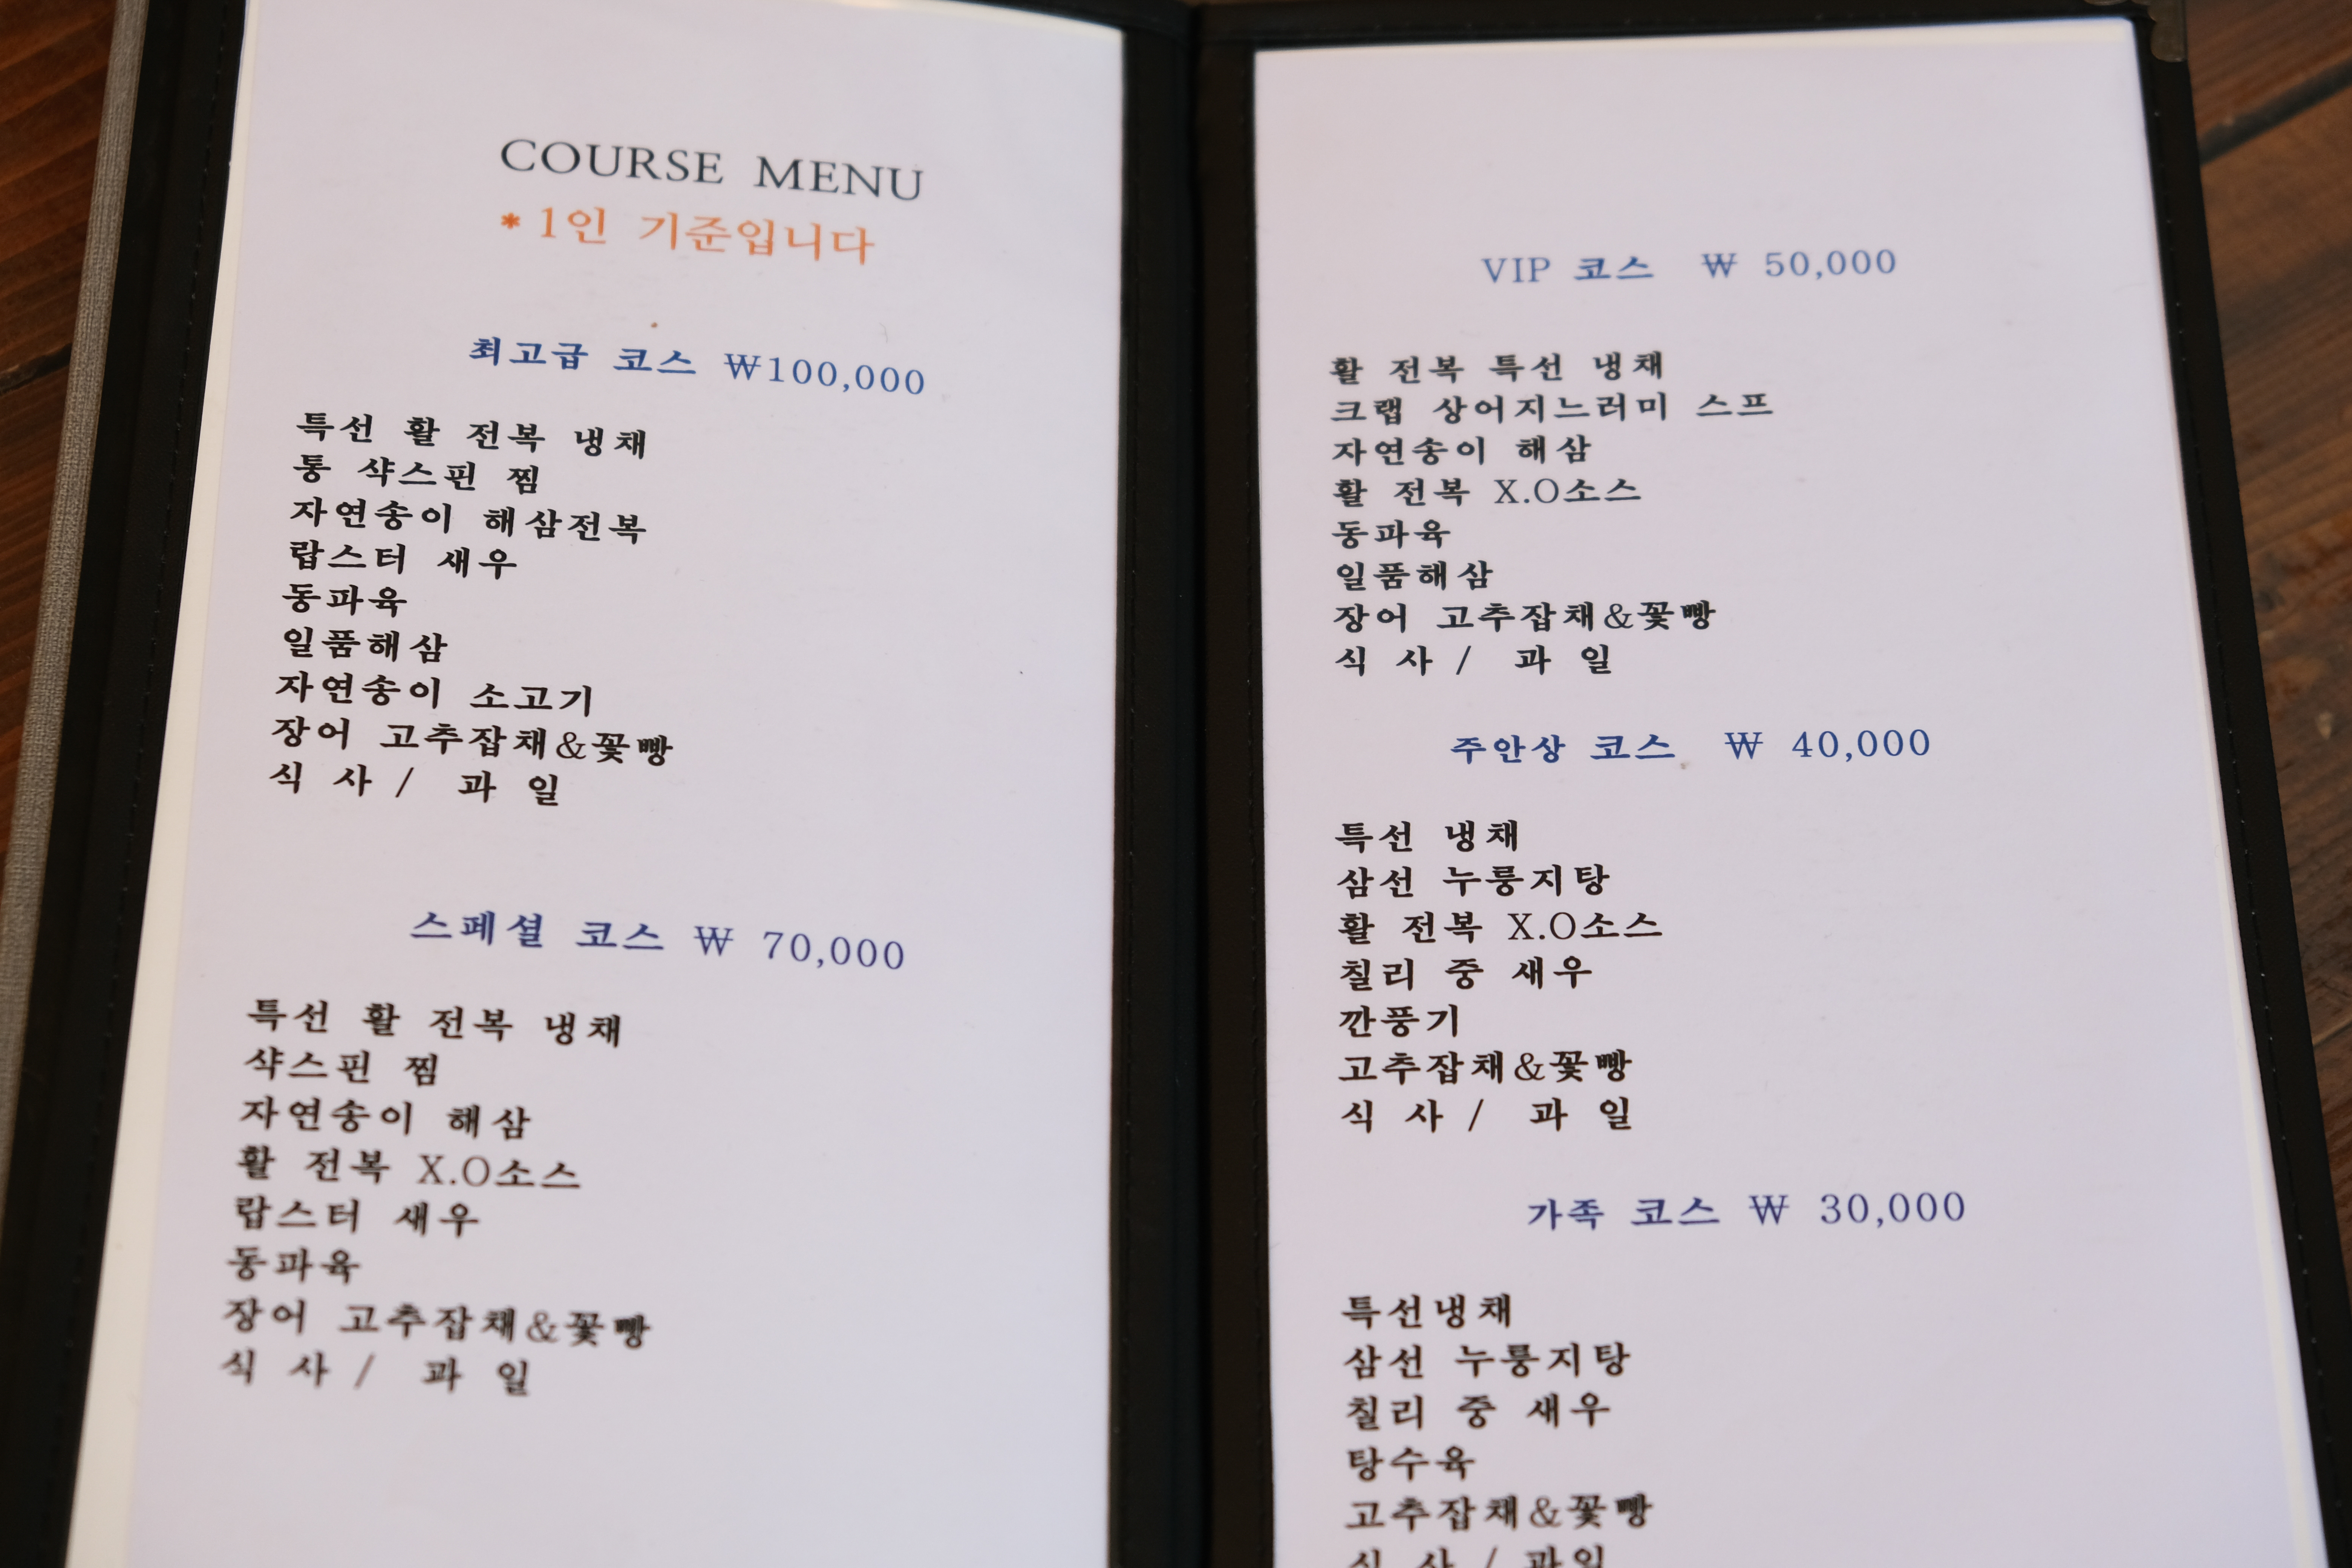 COURSE MENU
* 1인 기준입니다
최고급 코스 ₩100,000
특선 활 전복 냉채
통 샥스핀 찜
자연송이 해삼전복
랍스터 새우
동파육
일품해삼
자연송이 소고기
장어 고추잡채&꽃빵
식 사 / 과 일
스페셜 코스 ₩ 70,000
특선 활 전복 냉채
샥스핀 찜
자연송이 해삼
활 전복 X.O소스
랍스터 새우
동파육
장어 고추잡채&꽃빵
식 사 / 과 일
VIP 코스 ₩ 50,000
활 전복 특선 냉채
크랩 상어지느러미 스프
자연송이 해삼
활 전복 X.O소스
동파육
일품해삼
장어 고추잡채&꽃빵
식 사 / 과 일
주안상 코스 ₩ 40,000
특선 냉채
삼선 누룽지탕
활 전복 X.O소스
칠리 중 새우
깐풍기
고추잡채&꽃빵
식 사 / 과 일
가족 코스 ₩ 30,000
특선냉채
삼선 누룽지탕
칠리 중 새우
탕수육
고추잡채&꽃빵
식 사 / 과일